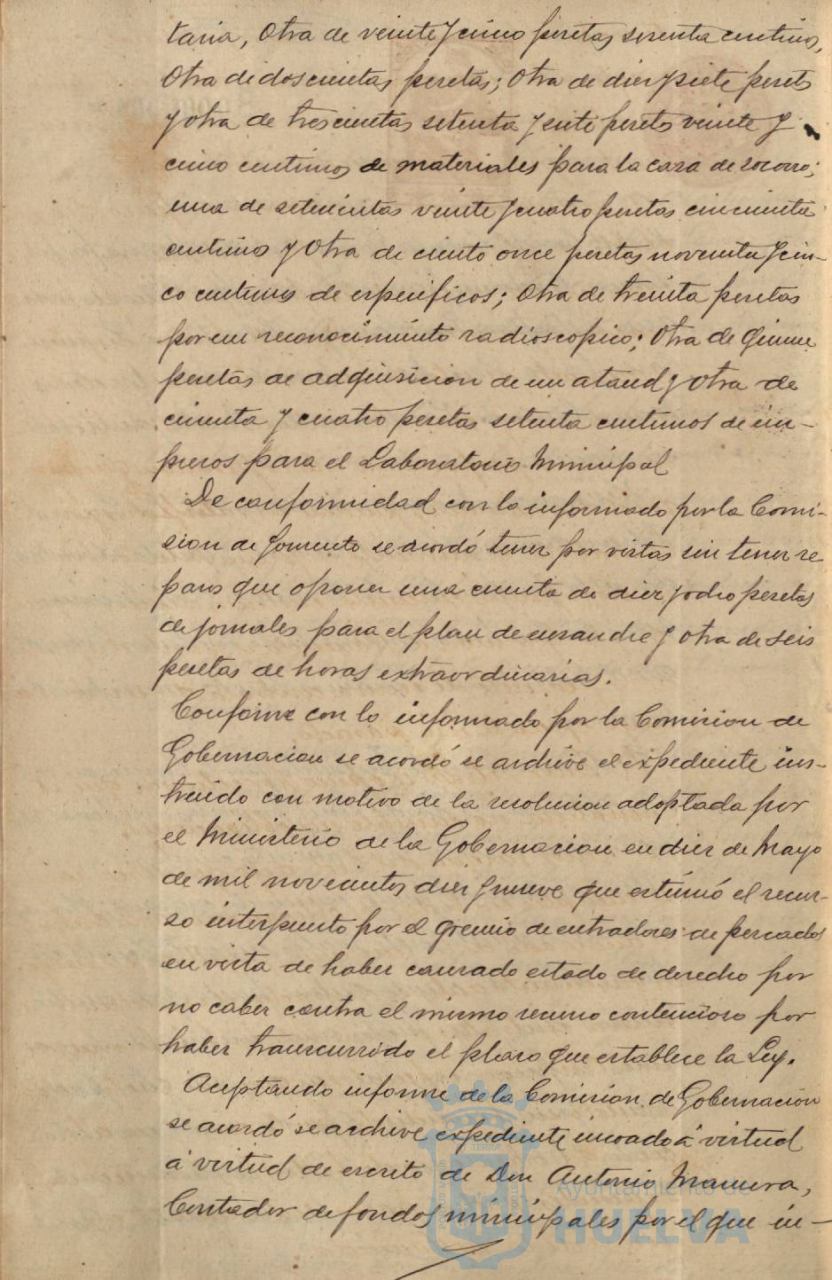 taria, Otra de veinte y cinco pesetas sesenta centimos,
Otra de doscientas pesetas; Otra de diez y siete pesets
y otra de trescientas setenta y siete pesets veinte y
cinco centimos de materiales para la casa de socorro;
una de setecientas veinte y cuatro pesetas cincuenta
centimos y Otra de ciento once pesetas noventa y cin-
co centimos de especificos; Otra de treinta pesetas
por un reconocimiento radioscopico; Otra de quince
pesetas de adquisicion de un ataud y Otra de
cincuenta y cuatro pesetas setenta centimos de im-
presos para el Laboratorio Municipal
De conformidad con lo informado por la Comi-
sion de Fomento se acordó tener por vistas sin tener re
paros que oponer una cuenta de diez y ocho pesetas
de jornales para el plan de ensanche y otra de seis
pesetas de horas extraordinarias.
Conforme con lo informado por la Comision de
Gobernacion se acordó se archive el expediente ins-
truido con motivo de la resolucion adoptada por
el Ministerio de la Gobernacion en diez de Mayo
de mil novecientos diez y nueve que estimó el recur-
so interpuesto por el gremio de entradores de pescados
en vista de haber causado estado de derecho por
no caber contra el mismo recurso contencioso por
haber transcurrido el plazo que establece la Ley.
Aceptando informe de la Comision de Gobernacion
se acordó se archive expediente incoado á virtud
á virtud de escrito de Don Antonio
Contador de fondos municipales por el que in-
Ayuntamiento de
HUELVA